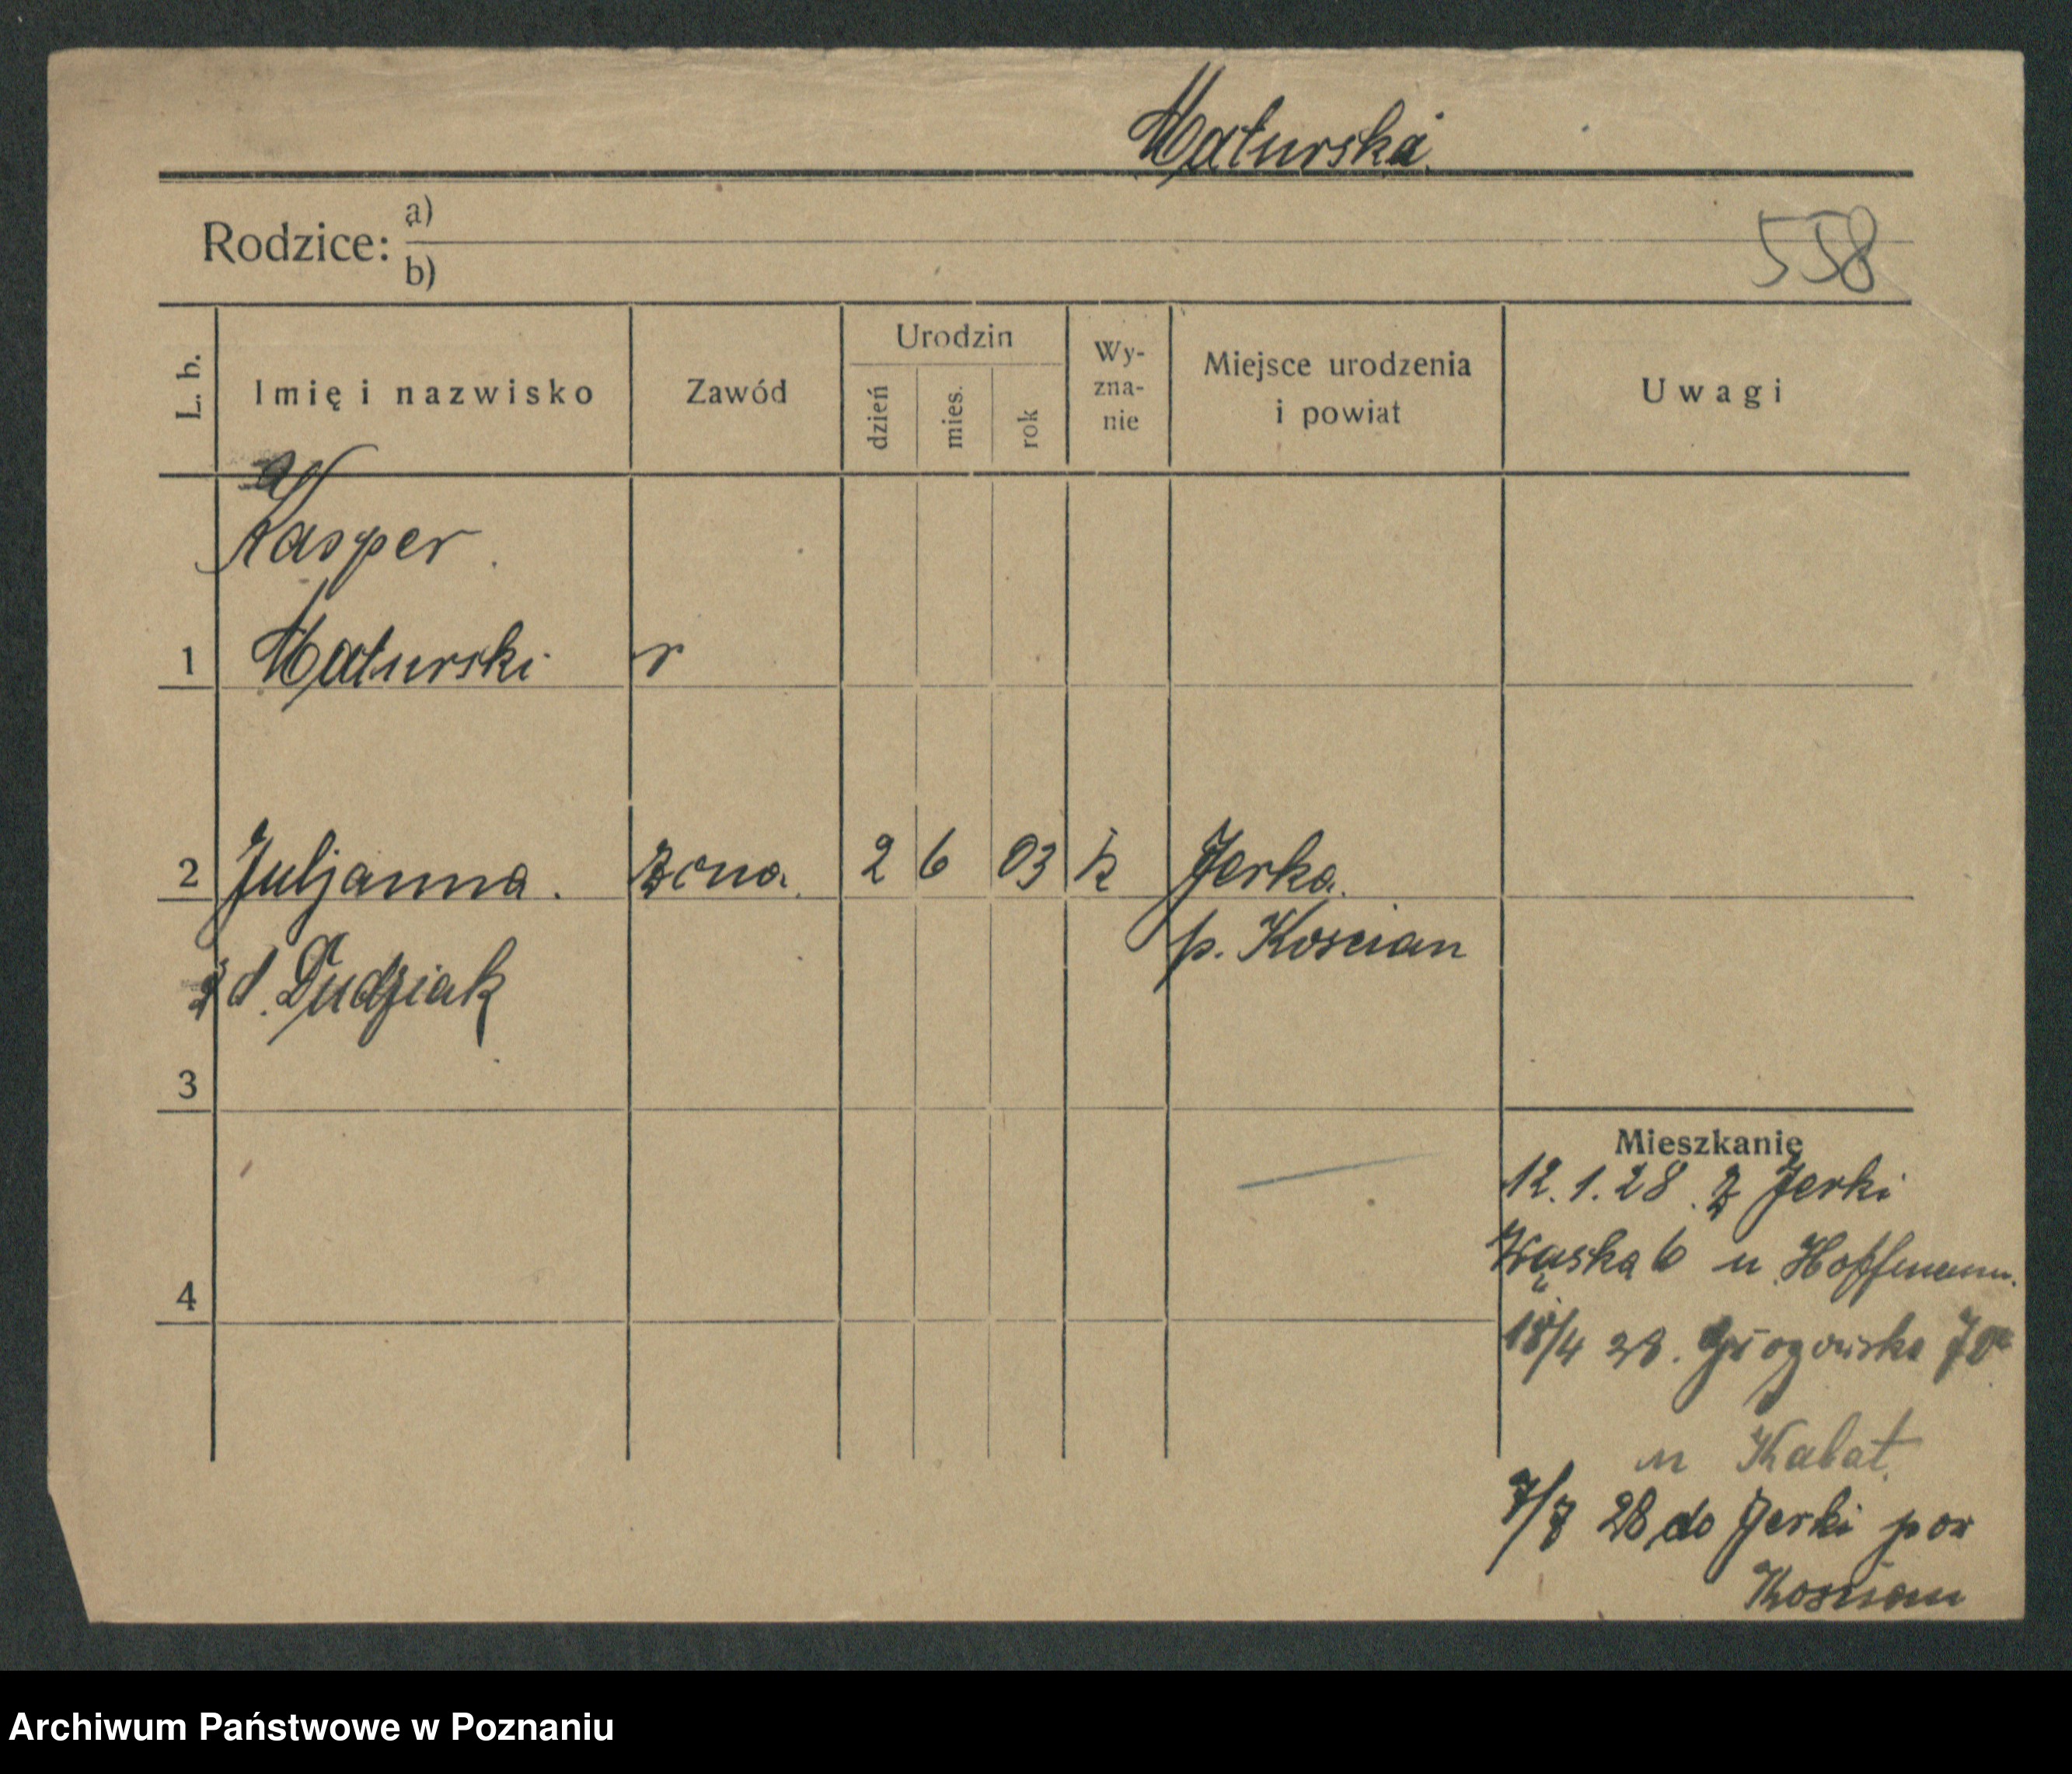 Maturska
Rodzice: a)
b)
558
L. b.
Imię i nazwisko
Zawód
Urodzin
dzień
mies.
rok
Wy-
zna-
nie
Miejsce urodzenia
i powiat
Uwagi
Kasper
1 Maturski r
2 Juljanna. żona. 2 6 03 k Jerka.
p. Kościan
zd. Dudziak
3
Mieszkanie
12.1.28. z Jerki
Wąska 6 u Hoffmann.
4
18/4 28. Głogowska
u Kabat.
7/7 28 do Jerki pow
Kościan
Archiwum Państwowe w Poznaniu